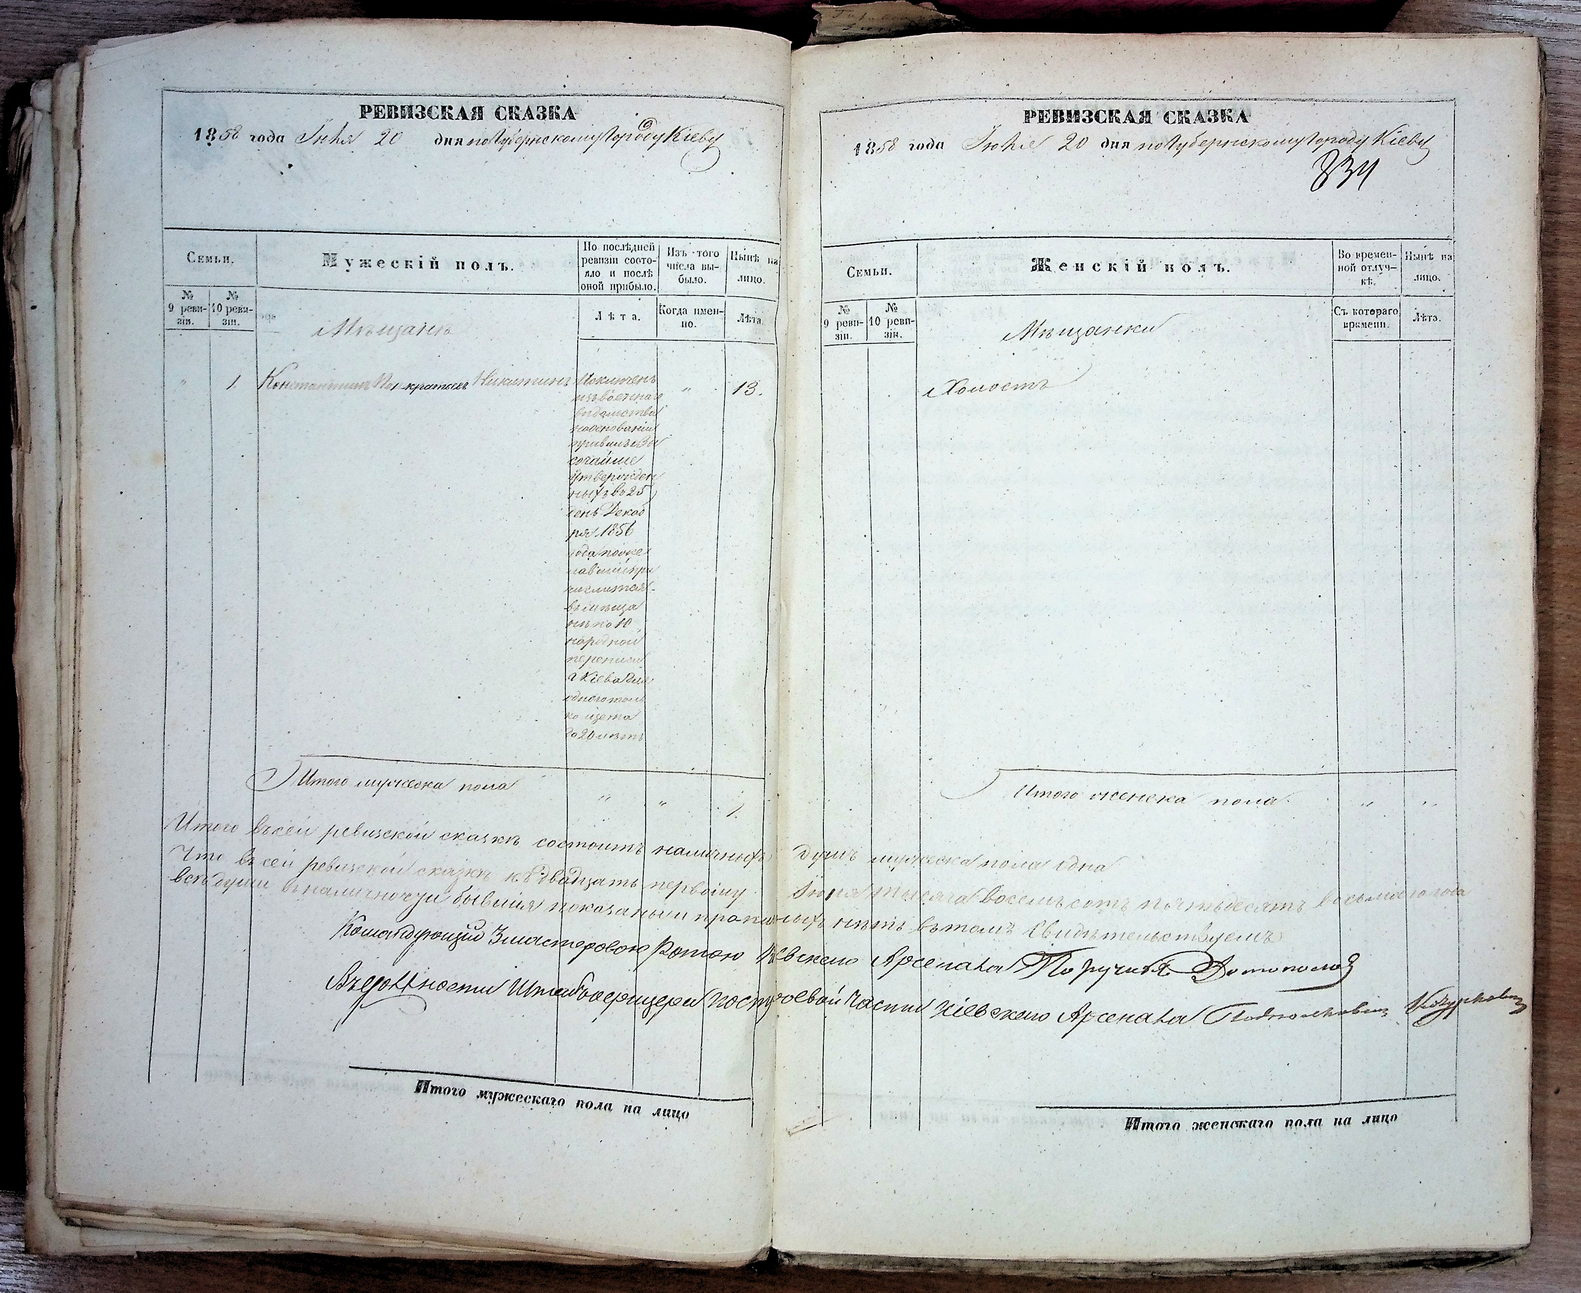 РЕВИЗСКАЯ СКАЗКА
1858 года Іюня 20 дня по Губернскому Городу Кіеву
Семьи.
Мужескій полъ.
По послѣдней ревизіи состояло и послѣ оной прибыло.
Изъ того числа выбыло.
Нынѣ на лицо.
№ 9 ревизіи.
№ 10 ревизіи.
Лѣта.
Когда именно.
Лѣта.
Мѣщанъ
" 1. Константинъ Никитинъ " 13.
изъ военнаго
вѣдомства
на основаніи
сочайше
утвержден
ныхъ въ 25
день Декаб
ря 1856
года
числится
въ мѣща
не по 10
народной
переписи
г Кіева для
одного толь
ко щета
Итого мужеска пола " " 1.
РЕВИЗСКАЯ СКАЗКА
1858 года Іюня 20 дня по Губернскому Городу Кіеву
834
Семьи.
Женскій полъ.
Во временной отлучкѣ.
Нынѣ на лицо.
№ 9 ревизіи.
№ 10 ревизіи.
Съ котораго времени.
Лѣта.
Мѣщанки
Холостъ
Итого женска пола " "
Итого въ сей ревизской сказкѣ состоитъ наличныхъ душъ мужеска пола одна
Что въ сей ревизской сказкѣ къ двадцать первому Іюня тысяча восемьсотъ пятьдесятъ восьмаго года
всѣ души въ наличночи бывшія показаны и прописныхъ нѣтъ въ томъ свидѣтельствуемъ
Командующій 3 мастеровою Ротою Кіевскаго Арсенала Поручикъ
Въ должности Штабъ офицера по строевой части Кіевскаго Арсенала Подполковникъ
Итого мужескаго пола на лицо
Итого женскаго пола на лицо